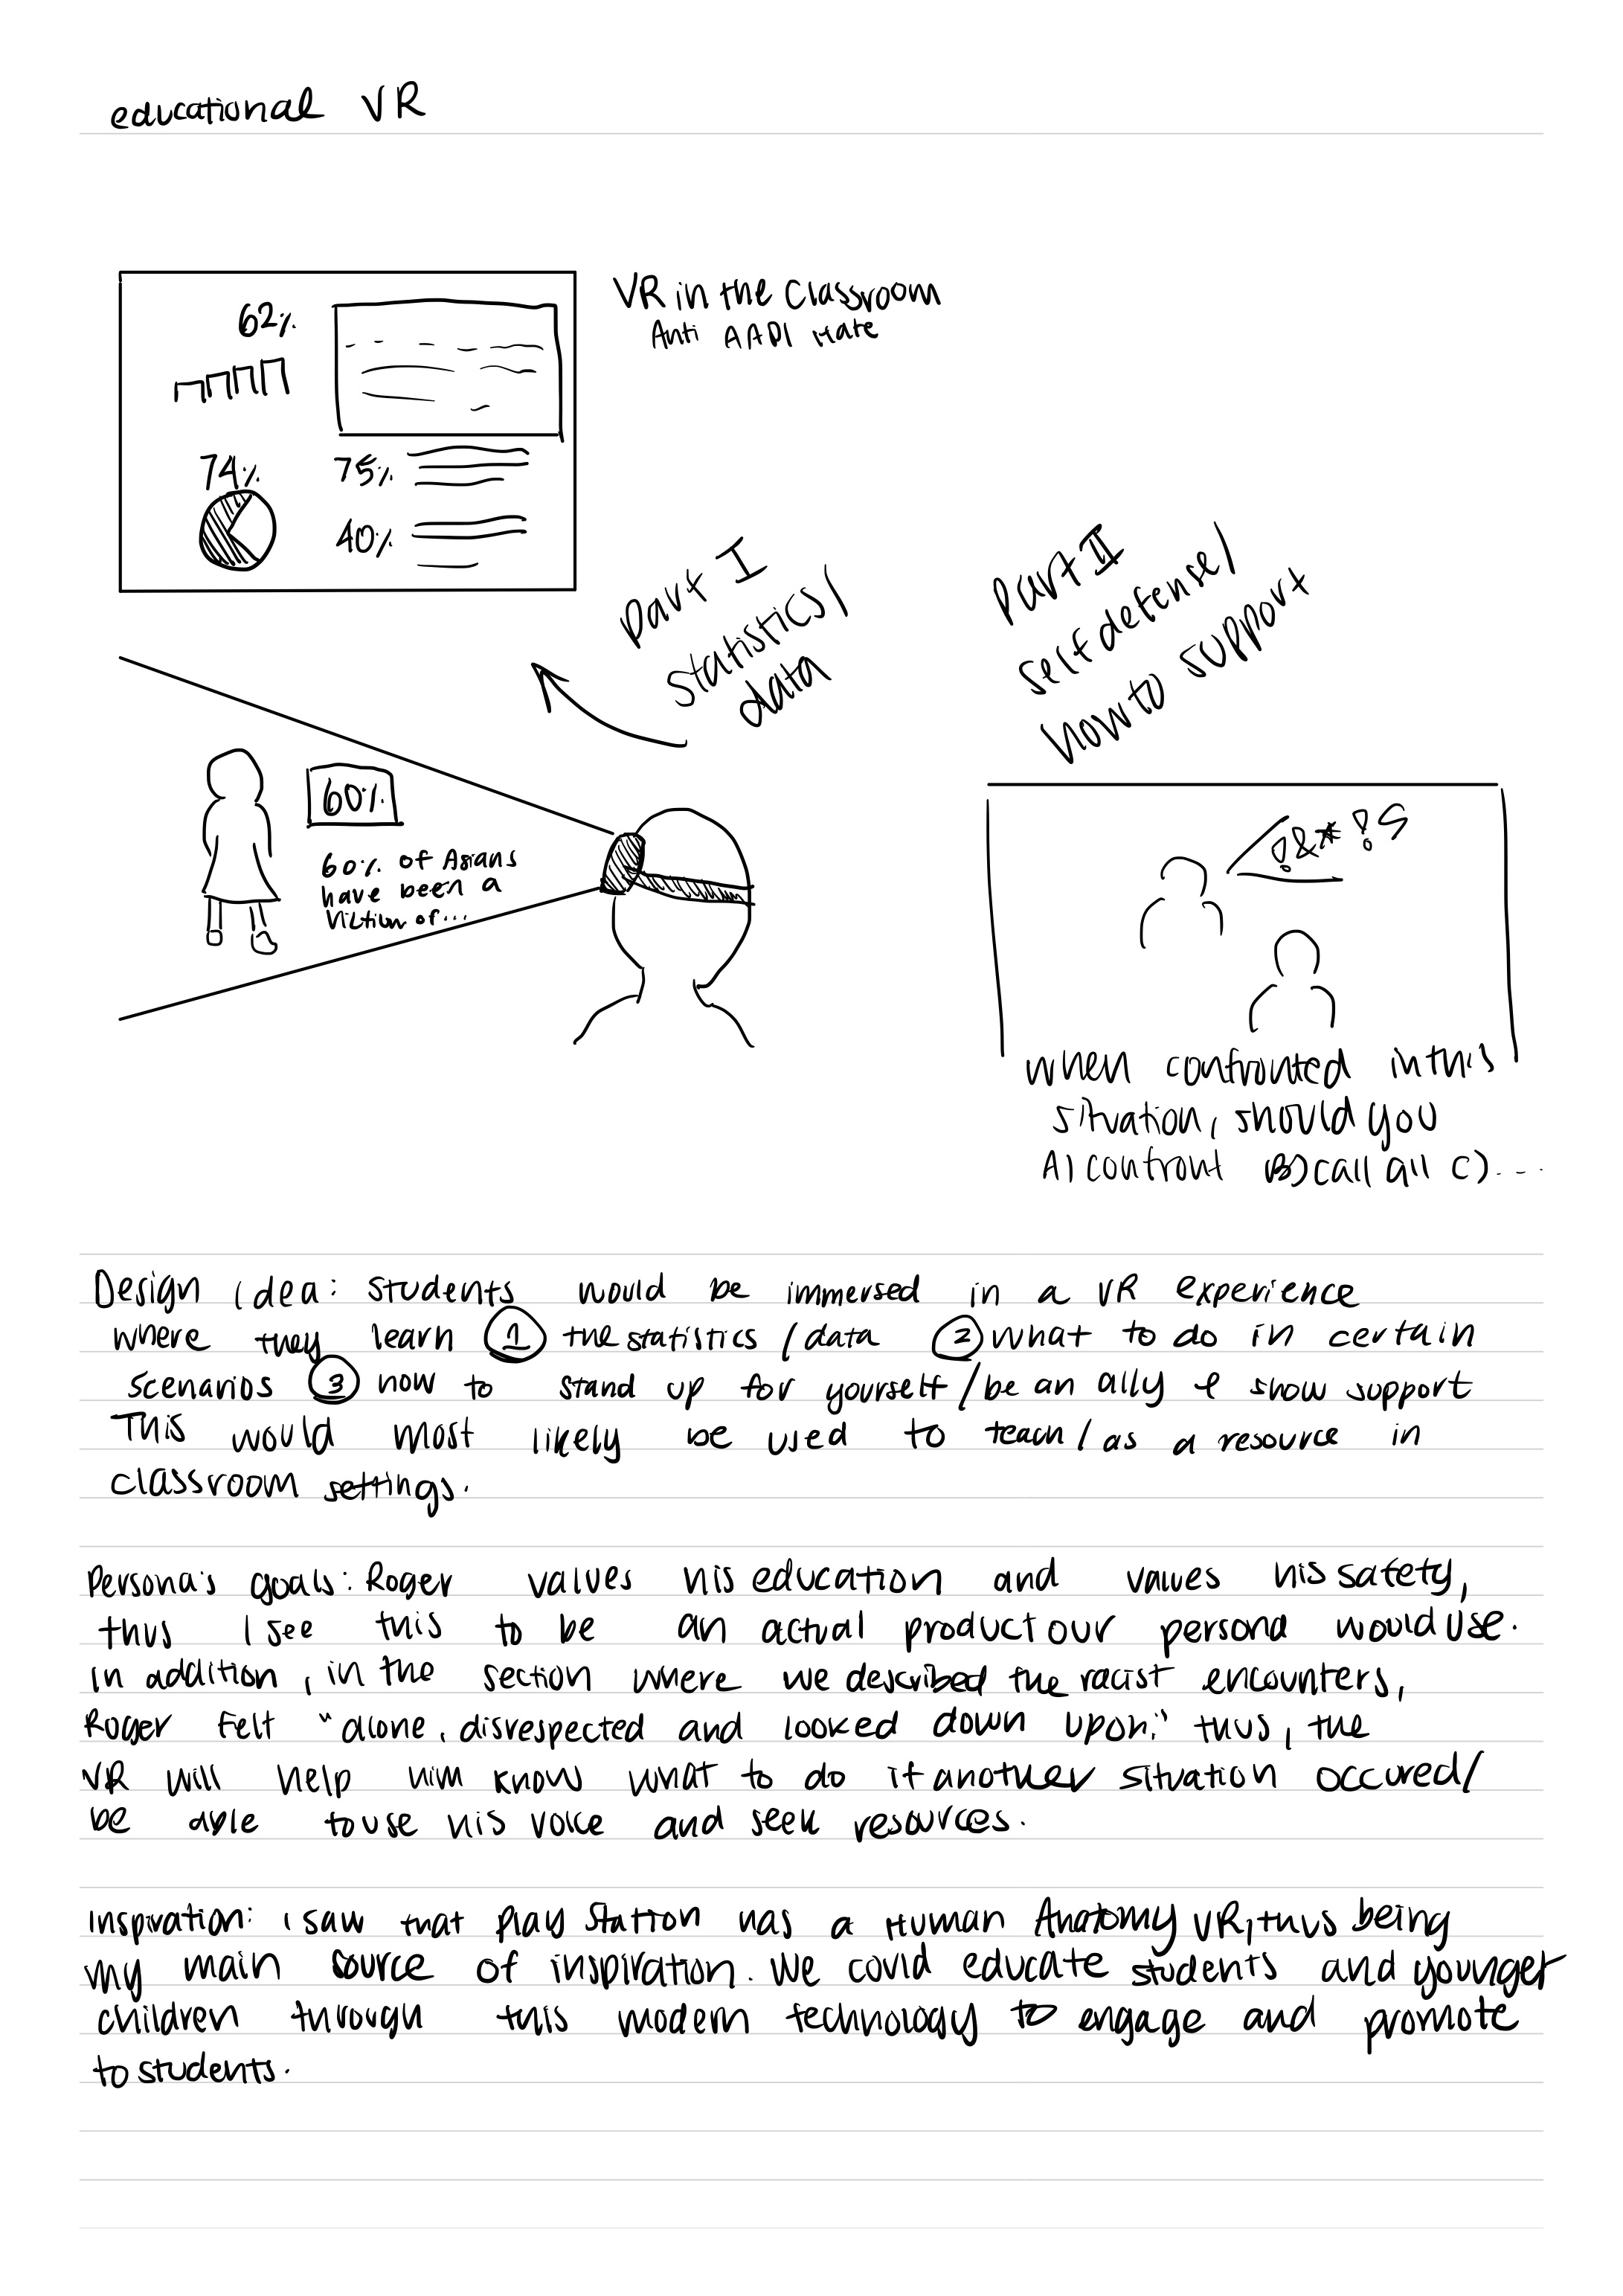 educational VR
62%
VR in the Classroom
Anti AAPI Hate
74%
75%
40%
Part I
Statistics/
data
Part II
self defense/
how to support
60%
60% of Asians
have been a
victim of...
!&*!?
when confronted in this
situation, should you
A) confront B) call all C)...
Design idea: students would be immersed in a VR experience
where they learn 1 the statistics/data 2 what to do in certain
scenarios 3 how to stand up for yourself/be an ally & show support
This would most likely be used to teach/as a resource in
classroom settings.
Persona's goals: Roger values his education and values his safety,
thus I see this to be an actual product our persona would use.
In addition, in the section where we described the racist encounters,
Roger felt "alone, disrespected and looked down upon." thus, the
VR will help him know what to do if another situation occured/
be able to use his voice and seek resources.
Inspiration: I saw that PlayStation has a Human Anatomy VR, thus being
my main source of inspiration. We could educate students and younger
children through this modern technology to engage and promote
to students.